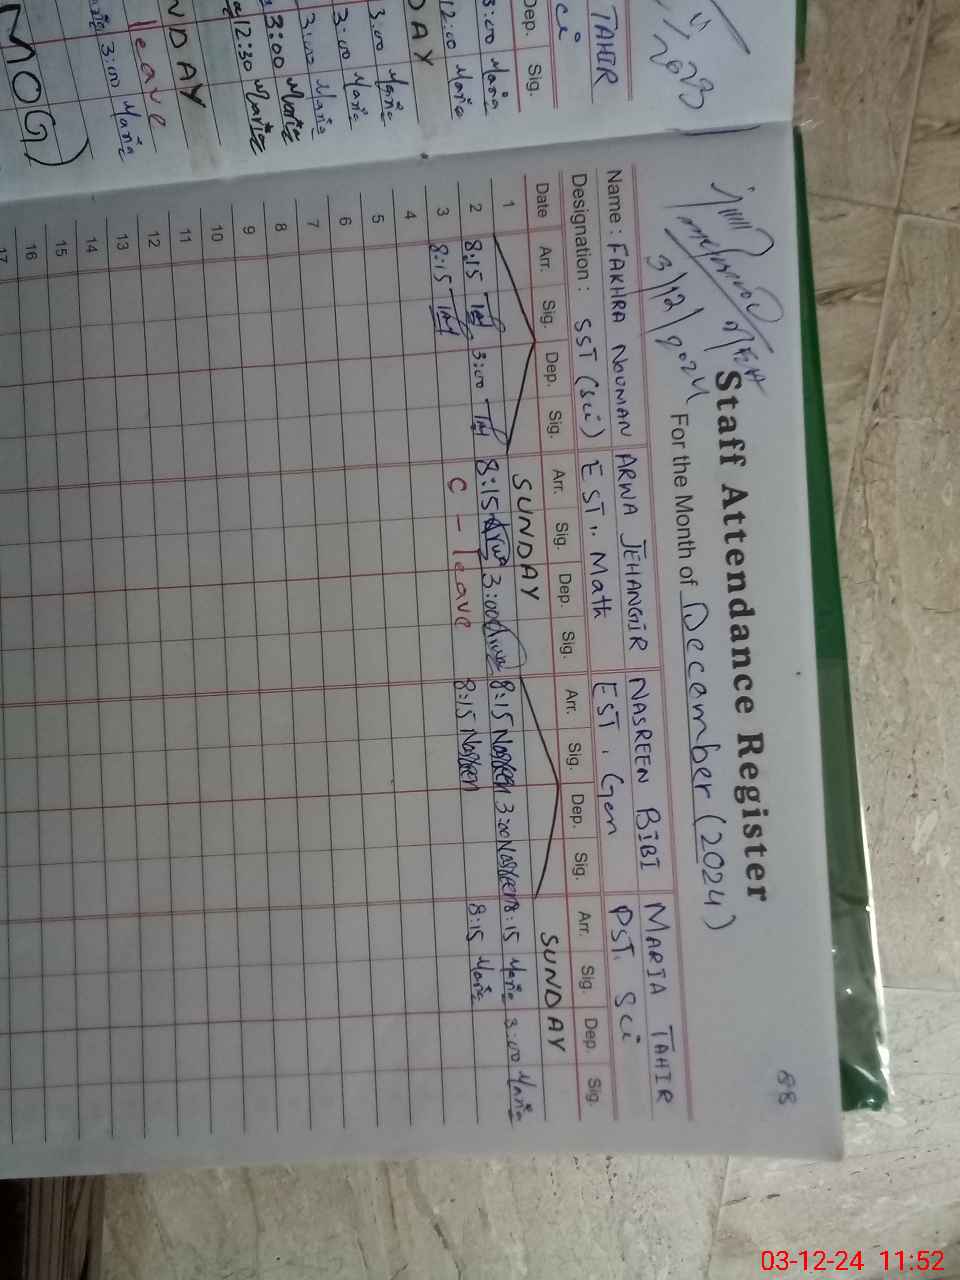 Staff Attendance Register
88
For the Month of December (2024)
3/12/2024
Name : FAKHRA NOUMAN ARWA JEHANGIR NASREEN BIBI MARIA TAHIR
Designation : SST (Sci) EST. Math EST. Gen PST. Sci
Date Arr. Sig. Dep. Sig. Arr. Sig. Dep. Sig. Arr. Sig. Dep. Sig. Arr. Sig. Dep. Sig.
1 SUNDAY SUNDAY
2 8:15 3:00 8:15 Arwa 3:00 Arwa 8:15 Nasreen 3:00 Nasreen 8:15 Maria 3:00 Maria
3 8:15 C - leave 8:15 Nasreen 8:15 Maria
4
5
6
7
8
9
10
11
12
13
14
15
16
17
TAHIR
Sci
Dep. Sig.
3:00 Maria
12:00 Maria
DAY
3:00 Maria
3:00 Maria
3:00 Maria
3:00 Maria
12:30 Maria
NDAY
leave
3:00 Maria
MOG)
2023
03-12-24 11:52